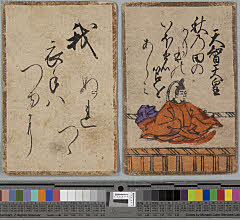 天智天皇
秋乃田の
かりほの
いほの
とまを
あらみ
我
衣手ハ
つゆに
ぬれつゝ